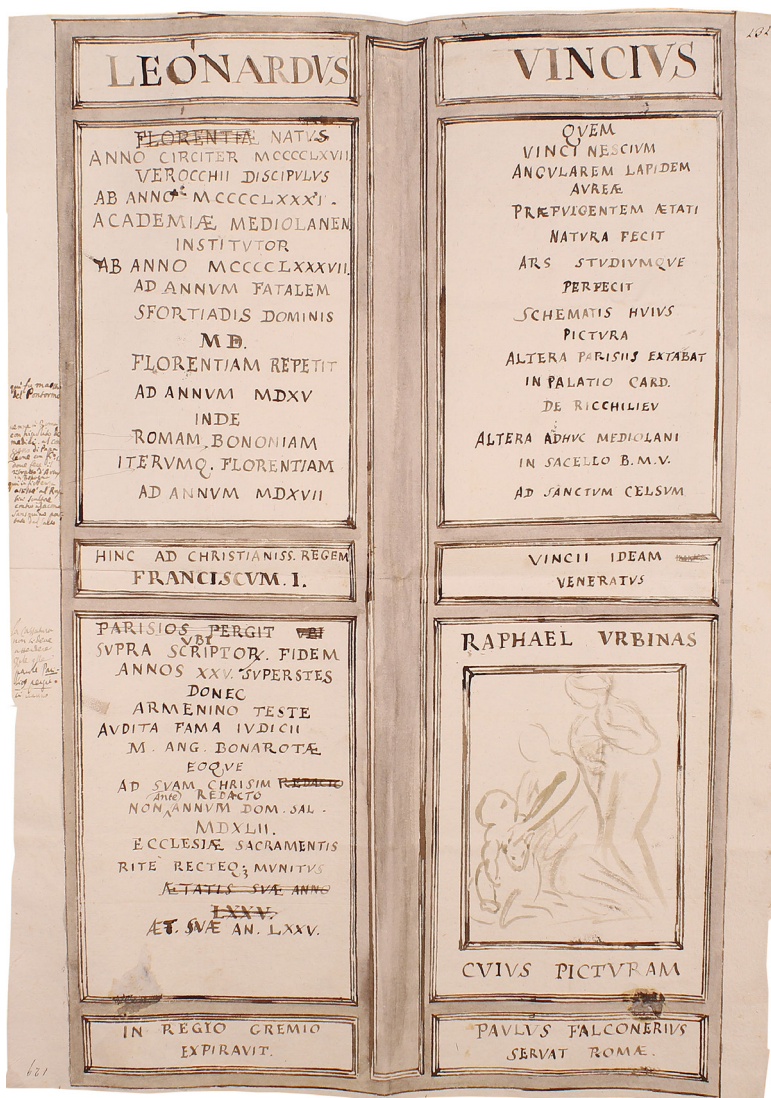 LEONARDVS
FLORENTIÆ NATVS
ANNO CIRCITER MCCCCLXVII
VEROCCHII DISCIPVLVS
AB ANNO MCCCCLXXXII.
ACADEMIÆ MEDIOLANEN
INSTITVTOR
AB ANNO MCCCCLXXXVII.
AD ANNVM FATALEM
SFORTIADIS DOMINIS
MD.
FLORENTIAM REPETIT
AD ANNVM MDXV
INDE
ROMAM, BONONIAM
ITERVMQ. FLORENTIAM
AD ANNVM MDXVII
HINC AD CHRISTIANISS. REGEM
FRANCISCVM. I.
PARISIOS PERGIT VBI
VBI
SVPRA SCRIPTOR. FIDEM
ANNOS XXV. SVPERSTES
DONEC
ARMENINO TESTE
AVDITA FAMA IVDICII
M. ANG. BONAROTÆ
EOQVE
AD SVAM CHRISIM REDACTO
Ante REDACTO
NON ANNVM DOM. SAL.
MDXLII.
ECCLESIÆ SACRAMENTIS
RITE RECTEQ; MVNITVS
ÆTATIS SVÆ ANNO
LXXV.
ÆT. SVÆ AN. LXXV.
IN REGIO GREMIO
EXPIRAVIT.
621
VINCIVS
QVEM
VINCI NESCIVM
ANGVLAREM LAPIDEM
AVREÆ
PRÆFVLGENTEM ÆTATI
NATVRA FECIT
ARS STVDIVMQVE
PERFECIT
SCHEMATIS HVIVS
PICTVRA
ALTERA PARISIIS EXTABAT
IN PALATIO CARD.
DE RICCHILIEV
ALTERA ADHVC MEDIOLANI
IN SACELLO B. M. V.
AD SANCTVM CELSVM
VINCII IDEAM
VENERATVS
RAPHAEL VRBINAS
CVIVS PICTVRAM
PAVLVS FALCONERIVS
SERVAT ROMÆ.